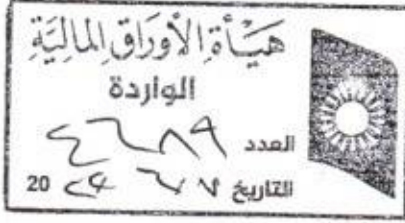 هَيْأَةُ الأَوْرَاقِ المَالِيَّةِ
الواردة
العدد ٤٦٨٩
التاريخ 20٢٤